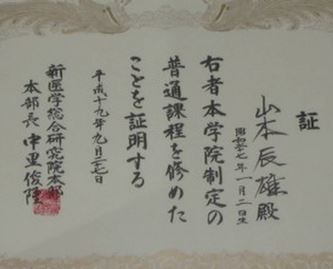 証
山本辰雄殿
昭和十七年一月二日生
右者本学院制定の
普通課程を修めた
ことを証明する
平成十九年九月二十七日
新医学総合研究院本部
本部長 中里俊隆